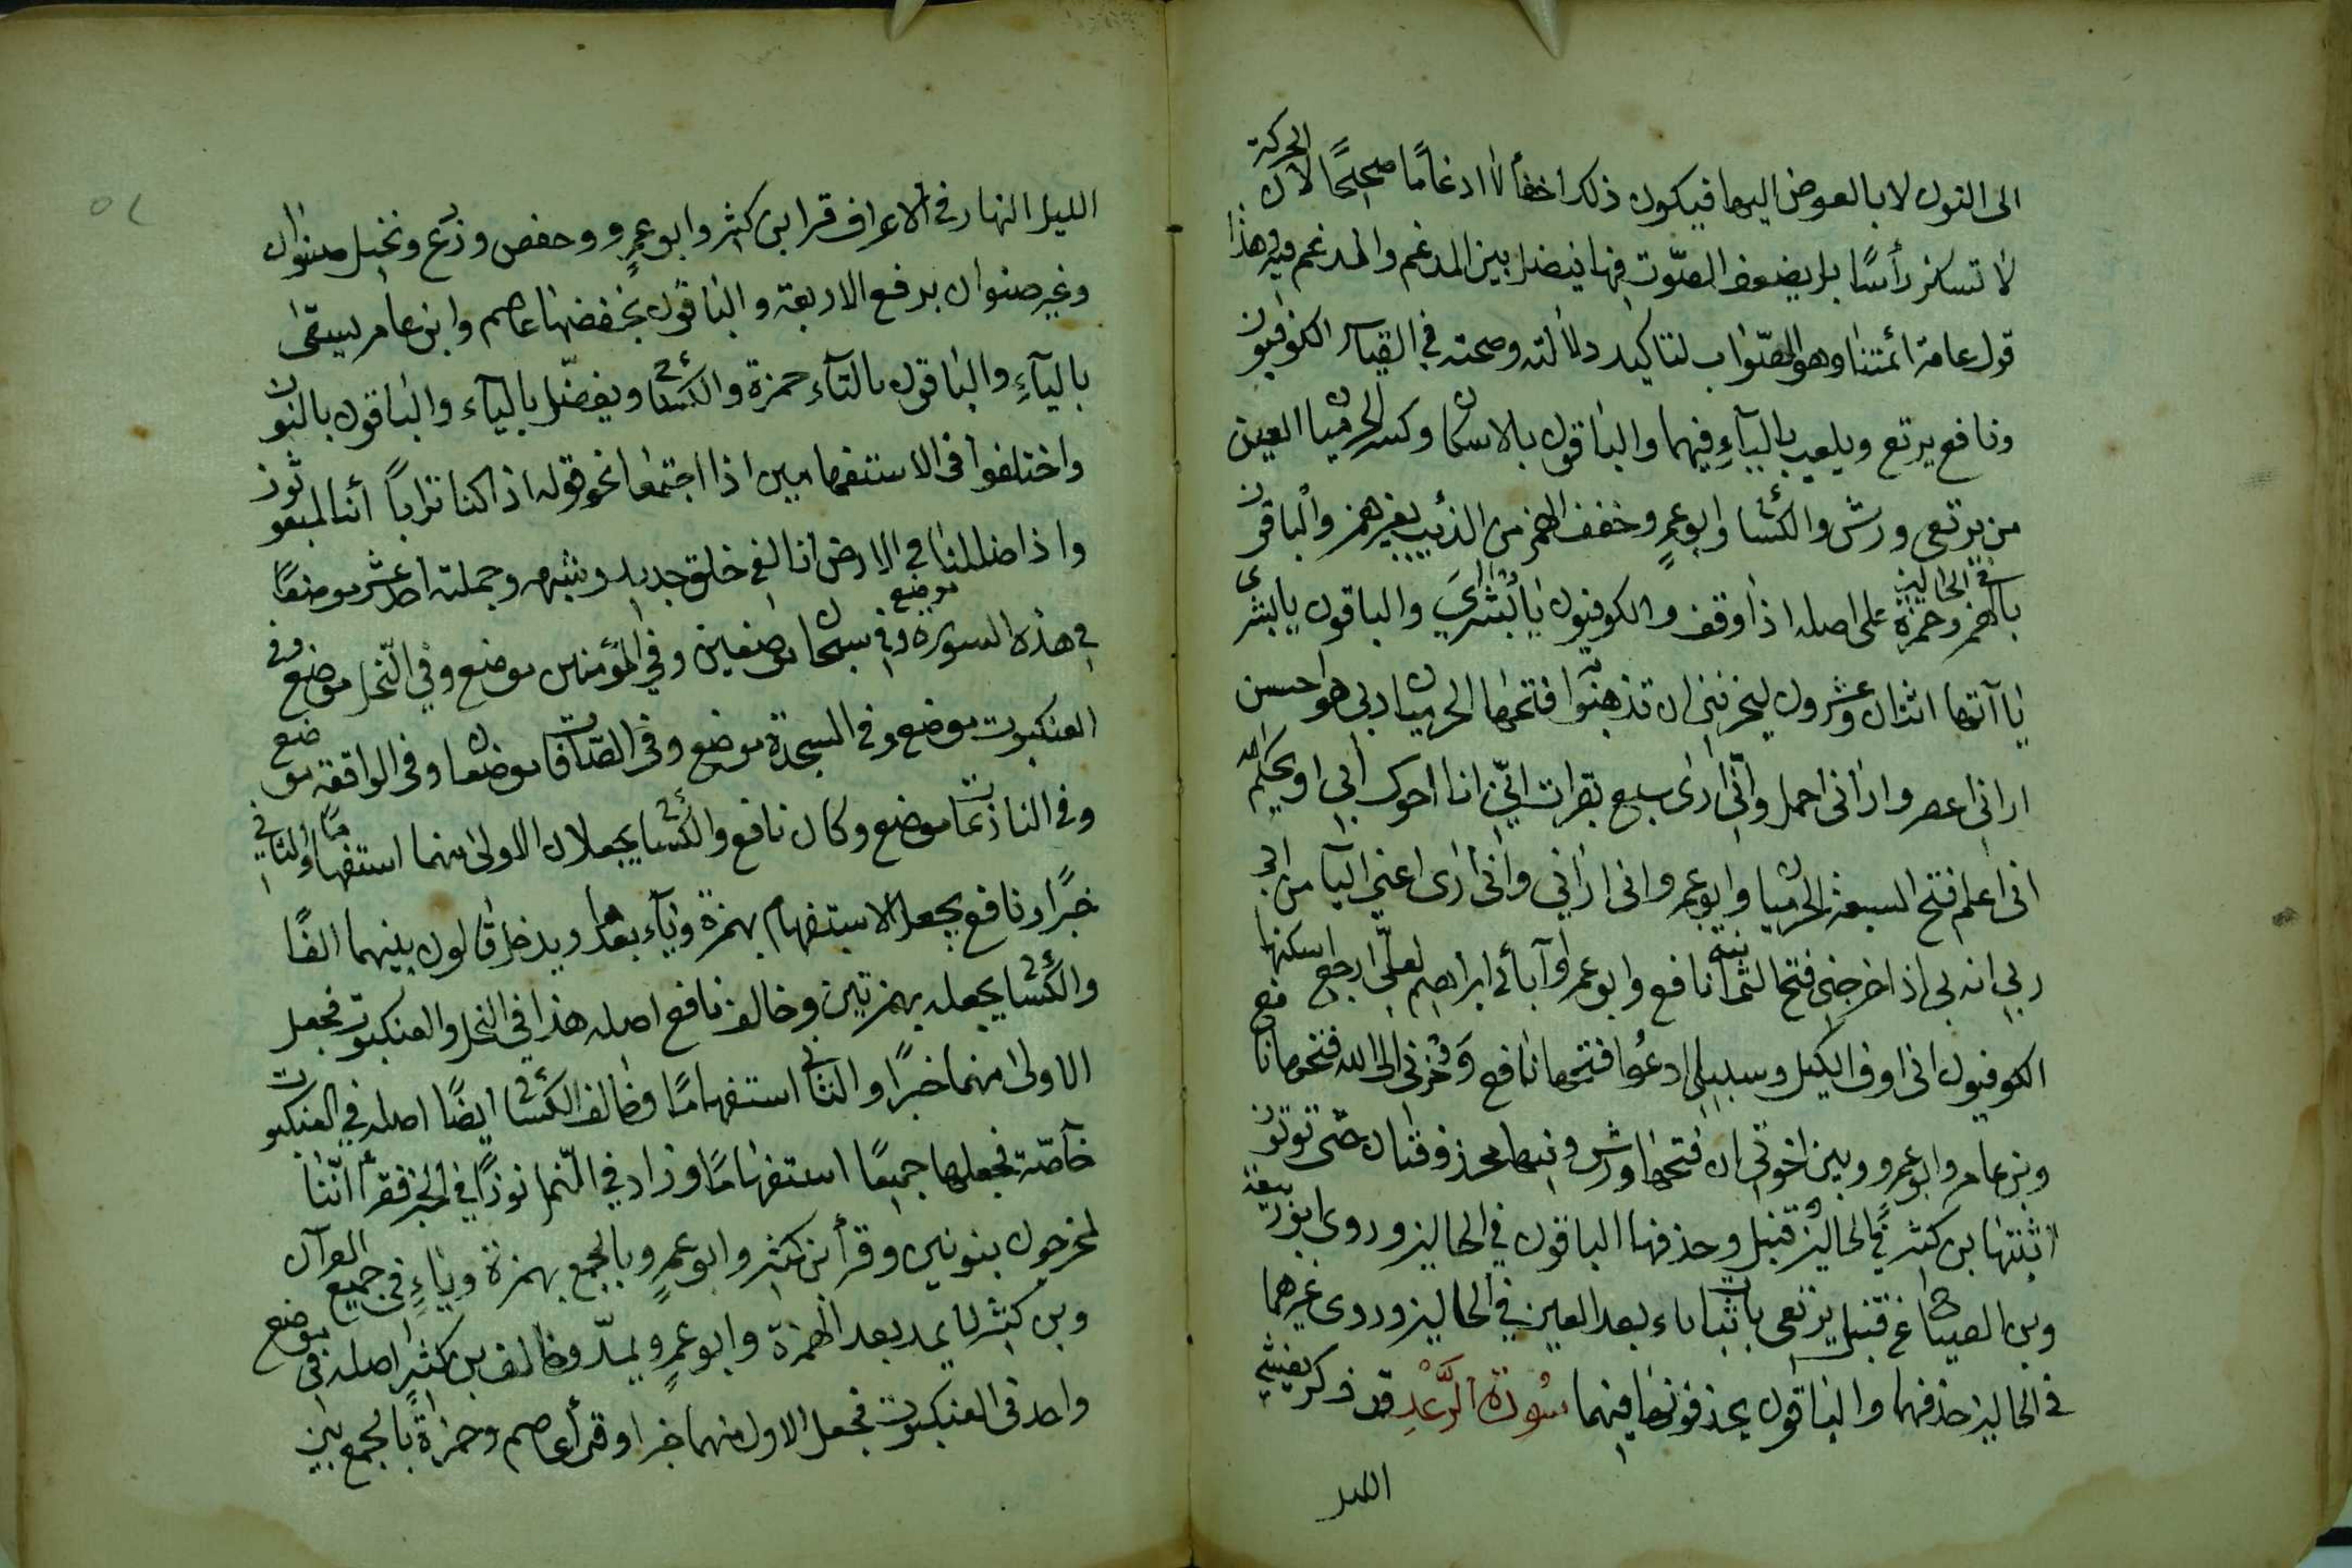 الى النون لا بالعوض اليها فيكون ذلك اخفاً لا ادغامًا صحيحًا لان الحركة
لا تسكن رأسًا بل يضعف الصّوت فيها فيفصل بين المدغم والمدغم فيه هذا
قول عامة ائمتنا وهو الصّواب لتاكيد دلالته وصحته في القياس الكوفيون
ونافع يرتع ويلعب باليآءِ فيهما والباقون بالاسكان وكسر الحرميان العين
من يرتعى ورش والكسائي وابو عمرٍو خفف الهمز من الذئب بغير همز والباقون
بالهمز وحمزة على اصله اذا وقف في الحالين والكوفيون يا بُشْرَيَ والباقون يا بشرى
يا آتها اثنان وعشرون ليحزننى ان تذهبوا به فتحها الحرميان ربى هو احسن
ارانى اعصر وارانى احمل وانّى ارى سبع بقرات انّى انا اخوك ابى او يحكم الله
انى اعلم فتح السبعة الحرميان وابو عمرو انى ارانى وانى ارى اعنى اليآ من ابى
ربى انه بى اذ اخرجنى فتح الثمانية نافع وابو عمرو آبائى ابراهيم لعلّى ارجع اسكنها
الكوفيون انى اوف الكيل وسبيلى ادعُوا فتحها نافع وَحُزنى الى الله فتحها نافع
وبن عامر وابو عمرو وبين اخوتى ان فتحها ورش وفيها محذوفتان حتى توتون
اثبتها بن كثير في الحالين قنبل وحذفها الباقون في الحالين وروى ابو ربيعة
وبن الصباح عن قنبل يرتعى باثبات ياء بعد العين في الحالين وروى غيرهما
في الحالين حذفها والباقون يحذفونها فيهما سُورَةُ الرَّعْدِ قد ذكر يغشى
الليل
الليل النهار في الاعراف قرا بن كثير وابو عمرٍو وحفص وزرع ونخيل صنوان
وغير صنوان برفع الاربعة والباقون بخفضها عاصم وابن عامر يسقى
باليآءِ والباقون بالتآء حمزة والكسائي ويفضّل باليآء والباقون بالنون
واختلفوا فى الاستفهامين اذا اجتمعا نحو قوله اذا كنا تراباً أئنا لمبعوثون
واذا ضللنا في الارض انا لفى خلق جديد وشبهه وجملته احد عشر موضعًا
في هذه السورة موضع وفى سبحان موضعين وفي المؤمنين موضع وفي النّحل موضع وفى
العنكبوت موضع وفى السجدة موضع وفى الصّافات موضعان وفى الواقعة موضع
وفى النازعات موضع وكان نافع والكسائي يجعلان الاولى منهما استفهامًا والثانى
خبرًا ونافع يجعل الاستفهام بهمزة ويآء بعدها ويدخل قالون بينهما الفًا
والكسائي يجعله بهمزتين وخالف نافع اصله هذا فى النحل والعنكبوت فجعل
الاولى منهما خبرًا والثانى استفهامًا وخالف الكسائي ايضًا اصله في العنكبوت
خآصّة فجعلها جميعًا استفهامًا وزاد في النّمل نونًا في الخبر فقرأ انّنا
لمخرجون بنونين وقرأ بن كثير وابو عمرٍو بالجمع بهمزة وياءٍ فى جميع القرآن
وبن كثير لا يمد بعد الهمزة وابو عمرٍو يمدّ وخالف بن كثير اصله فى موضع
واحد فى العنكبوت فجعل الاول منهما خبرا وقرأ عاصم وحمزة بالجمع بين